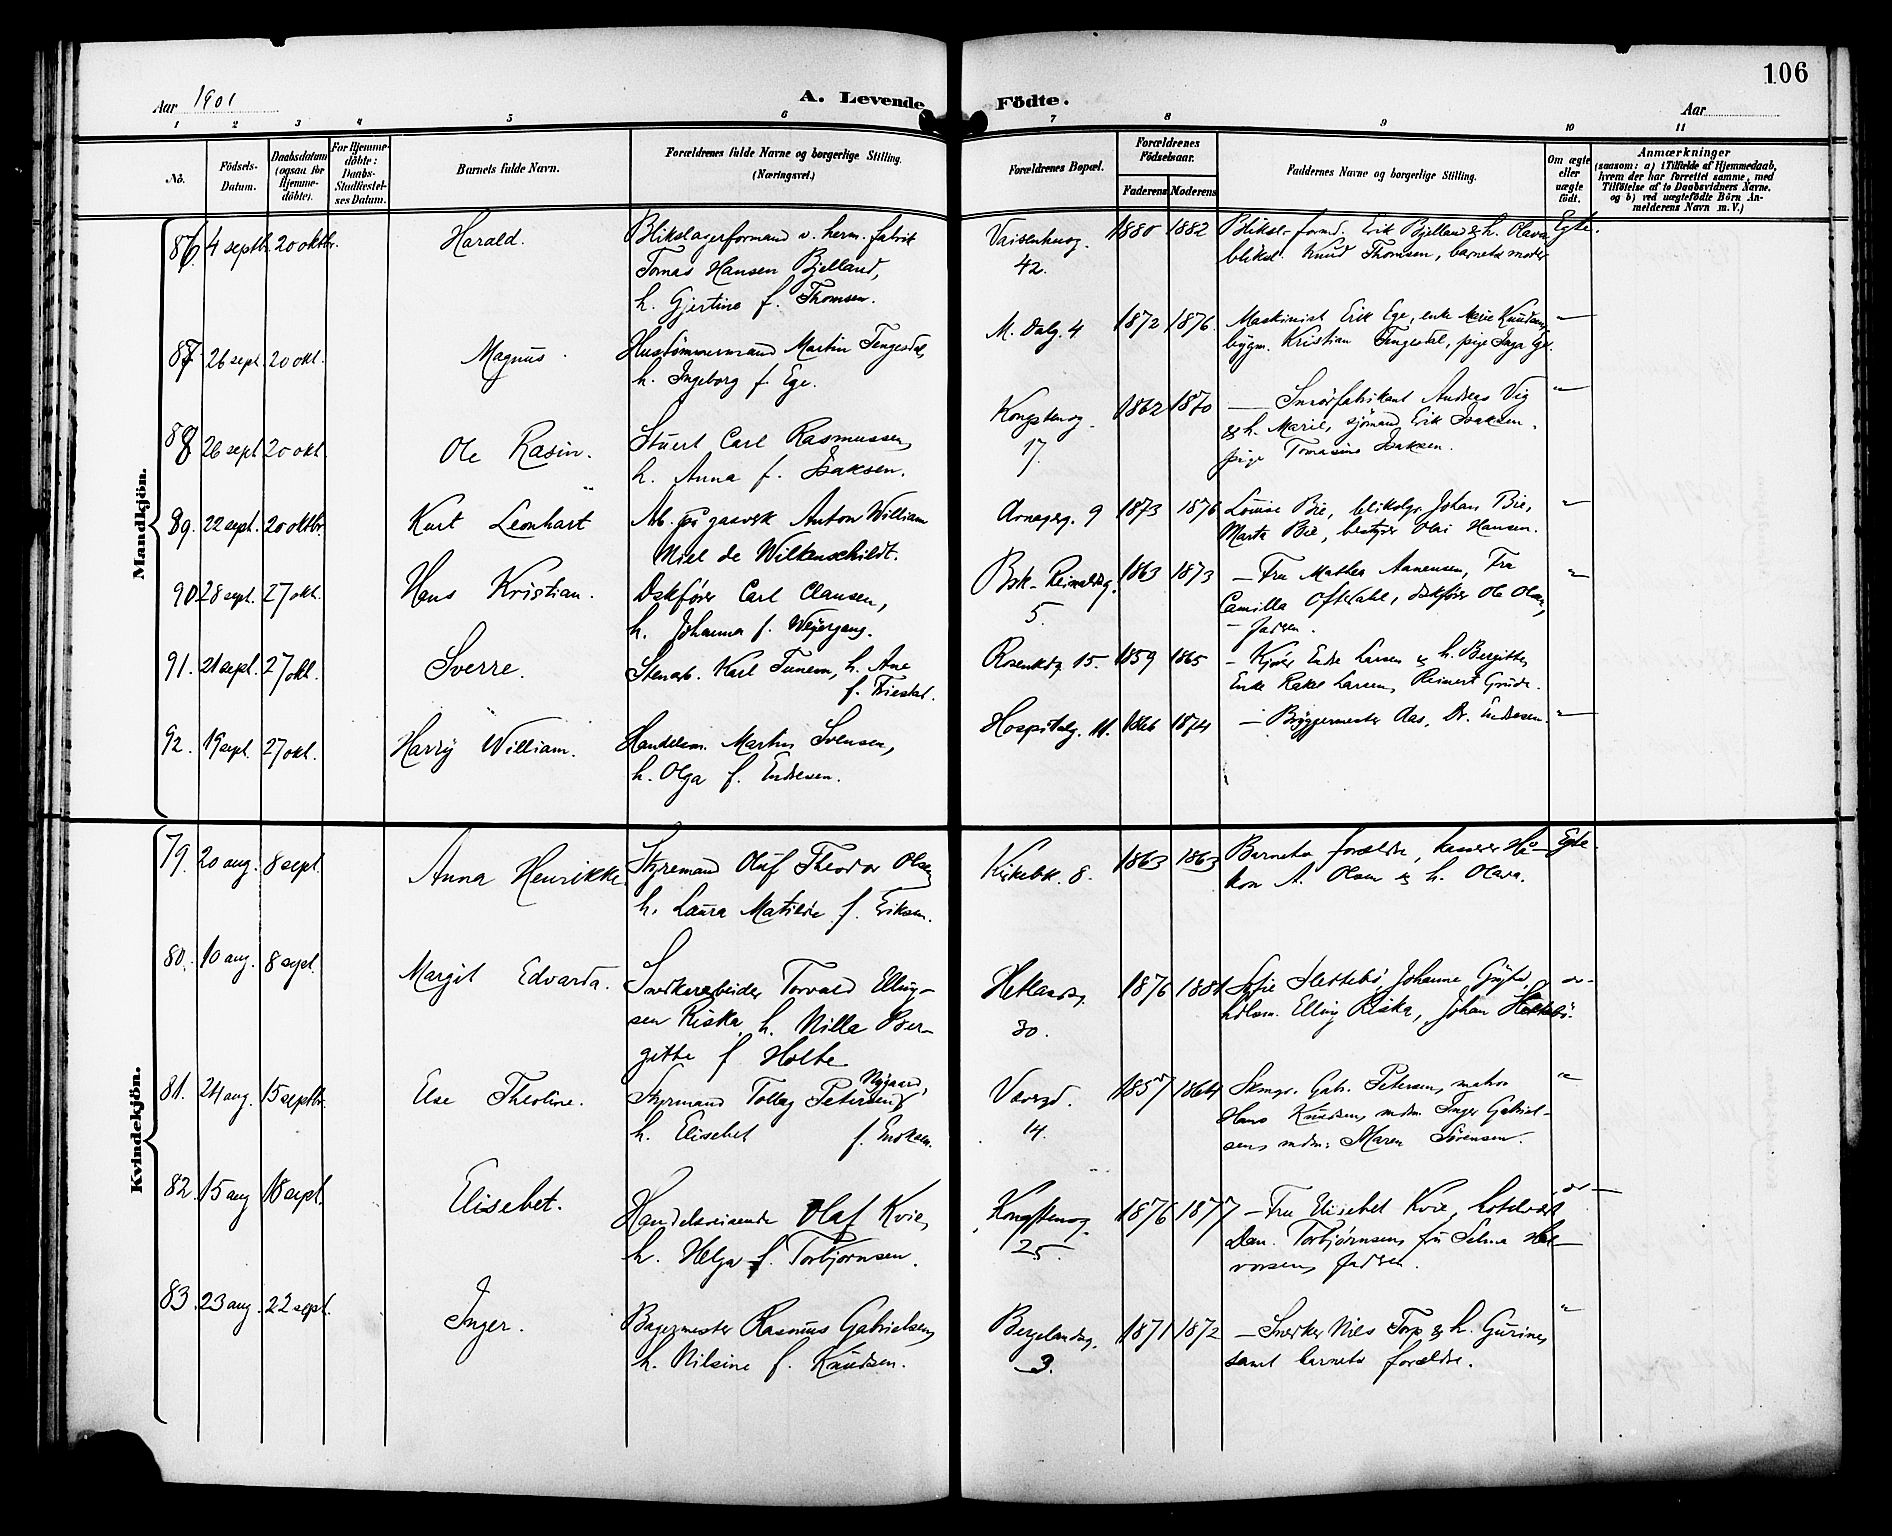 106
Aar 1901
A. Levende Födte.
Aar
1 2 3 4 5 6 7 8 9 10 11
No.
Födsels-Datum.
Daabsdatum (ogsaa for Hjemme-döbte).
For Hjemme-döbte: Daabs-Stadfæstel-ses Datum.
Barnets fulde Navn.
Forældrenes fulde Navne og borgerlige Stilling. (Næringsvei.)
Forældrenes Bopæl.
Forældrenes Födselsaar.
Faderens Moderens
Faddernes Navne og borgerlige Stilling.
Om ægte eller uægte födt.
Anmærkninger
(saasom: a) i Tilfælde af Hjemmedaab,
hvem der har forrettet samme, med
Tilföielse af to Daabsvidners Navne.
og b) ved uægtefödte Börn An-
melderens Navn m. V.)
Mandkjön.
86. 4 septb. 20 oktbr. Harald. Blikslagerformand v. herm. fabrik
Tomas Hansen Bjelland,
h. Gjertine f. Thomsen.
Vaisenhusg. 42. 1880 1882 Bliksl. formd. Erik Bjelland & h. Olava,
bliksl. Knud Thomsen, barnets moder
Egte.
87 26 sept. 20 okt. Magnus. Hustømmermand Martin Tengesdal,
h. Ingeborg f. Ege.
M. Dalg. 4 1872 1876. Maskinist Erik Ege, enke Marie Knudsen,
bygm. Kristian Tengesdal, pige Inga Ege.
"
88 26 sept 20 okt. Ole Rasin. Stuert Carl Rasmussen,
h. Anna f. Isaksen.
Kongstenog. 17. 1862 1870 — Smørfabrikant Andreas Vig
& h. Marie, sjömand Erik Isaksen.
pige Tomasine Isaksen.
"
89. 22 sept. 20 oktbr. Kurt Leonhart Arb. på gasverk Anton William
Miel de Wilkenschildt.
Arnegeg. 9 1873 1876 Louise Bie, blikslgr. Johan Bie,
Marta Bie, bestyrer Olai Hansen.
"
90 28 sept. 27 okt. Hans Kristian. Dskfører Carl Clausen,
h. Johanna f. Weyergang.
5. 1863 1873 — Fru Mathea Aanensen, Fru
Camilla Oftedahl, dskfører Ole Olsen,
— fadren.
"
91. 21 sept. 27 okt. Sverre. Stenarb. Karl Tunem, h. Ane
f. Tiestad.
Rosenkdg. 15. 1859 1865 — Kjører Endre Larsen & h. Bergitte,
Enke Rakel Larsen, Reinert Grude.
92. 19 sept. 27 okt. Harry William. Handelsm. Martin Svensen,
h. Olga f. Endresen.
Hospitalg. 11. 1866 1874 — Bryggermester Aas, Dr. Endresen.
"
Kvindekjön.
79. 20 aug. 8 sept. Anna Henrikke. Styremand Oluf Theodor Olsen,
h. Laura Matilde f. Eriksen.
Kirkebk. 8. 1863 1863 Barnets forældre, kasserer Hå-
kon A. Olsen & h. Olava.
Egte.
80. 10 aug. 8 sept. Margit Edvarda. Snekkerarbeider Torvald Elling-
sen Riska, h. Nilla Ber-
gitte f. Holte
Hetlandsg. 30. 1876 1881 Sofie Slettebö, Johanne
hdlsm. Elling Riska, Johan
81. 24 aug. 15 septbr. Else Theoline. Styrmand Tollag Petersen Nygaard,
h. Elisebet f. Eriksen.
14. 1857 1864 Skmgr. Gab. Petersen, matros
Hans Knudsen, mdm. Inger Gabriel-
sen, mdm: Maren Sörensen.
"
82. 15 aug 18 sept. Elisebet. Handelsreisende Olaf Kvie,
h. Helga f. Torbjørnsen.
Kongstenog. 25. 1876 1877 — Fru Elisebet Kvie, hotelvært
Dan. Torbjørnsen, fru Selma Hal-
vorsen, fadren.
83. 23 aug. 22 sept. Inger. Bagermester Rasmus Gabrielsen,
h. Nilsine f. Knudsen.
Bergelandsg. 3. 1871 1872 — Snekker Nils Torp & h. Gurine,
samt barnets forældre.
"